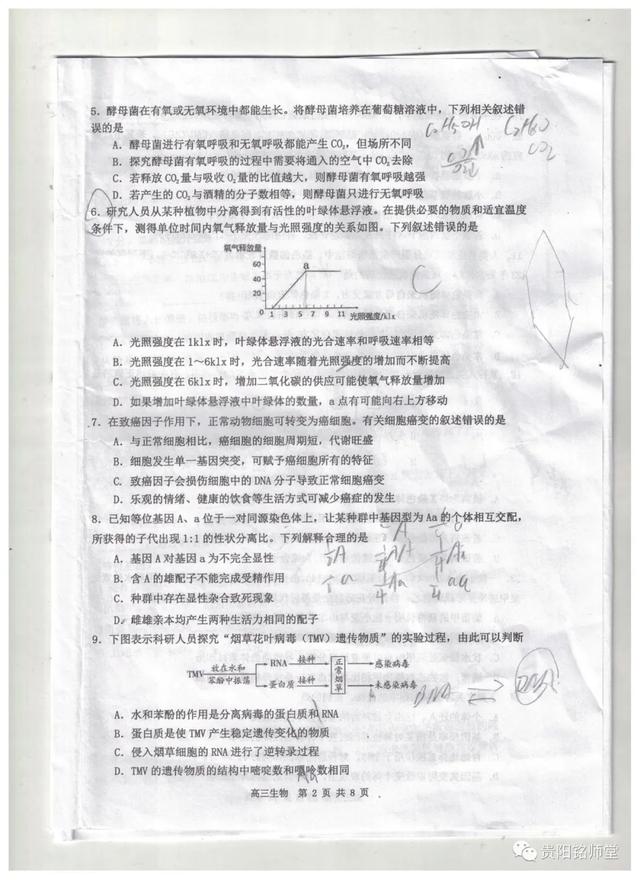 5．酵母菌在有氧或无氧环境中都能生长。将酵母菌培养在葡萄糖溶液中，下列相关叙述错
误的是
A．酵母菌进行有氧呼吸和无氧呼吸都能产生CO₂，但场所不同
B．探究酵母菌有氧呼吸的过程中需要将通入的空气中CO₂去除
C．若释放CO₂量与吸收O₂量的比值越大，则酵母菌有氧呼吸越强
D．若产生的CO₂与酒精的分子数相等，则酵母菌只进行无氧呼吸
C₂H₅OH
CO₂
6．研究人员从某种植物中分离得到有活性的叶绿体悬浮液。在提供必要的物质和适宜温度
条件下，测得单位时间内氧气释放量与光照强度的关系如图。下列叙述错误的是
氧气释放量
60
40
20
0
a
1 3 5 7 9 11 光照强度/klx
C
A．光照强度在1klx时，叶绿体悬浮液的光合速率和呼吸速率相等
B．光照强度在1～6klx时，光合速率随着光照强度的增加而不断提高
C．光照强度在6klx时，增加二氧化碳的供应可能使氧气释放量增加
D．如果增加叶绿体悬浮液中叶绿体的数量，a点有可能向右上方移动
7．在致癌因子作用下，正常动物细胞可转变为癌细胞。有关细胞癌变的叙述错误的是
A．与正常细胞相比，癌细胞的细胞周期短，代谢旺盛
B．细胞发生单一基因突变，可赋予癌细胞所有的特征
C．致癌因子会损伤细胞中的DNA分子导致正常细胞癌变
D．乐观的情绪、健康的饮食等生活方式可减少癌症的发生
8．已知等位基因A、a位于一对同源染色体上，让某种群中基因型为Aa的个体相互交配，
所获得的子代出现1:1的性状分离比。下列解释合理的是
A．基因A对基因a为不完全显性
B．含A的雄配子不能完成受精作用
C．种群中存在显性杂合致死现象
D．雌雄亲本均产生两种生活力相同的配子
9．下图表示科研人员探究“烟草花叶病毒（TMV）遗传物质”的实验过程，由此可以判断
TMV 放在水和苯酚中振荡
RNA 接种 正常烟草 感染病毒
蛋白质 接种 未感染病毒
A．水和苯酚的作用是分离病毒的蛋白质和RNA
B．蛋白质是使TMV产生稳定遗传变化的物质
C．侵入烟草细胞的RNA进行了逆转录过程
D．TMV的遗传物质的结构中嘧啶数和嘌呤数相同
高三生物 第2页 共8页
贵阳铭师堂